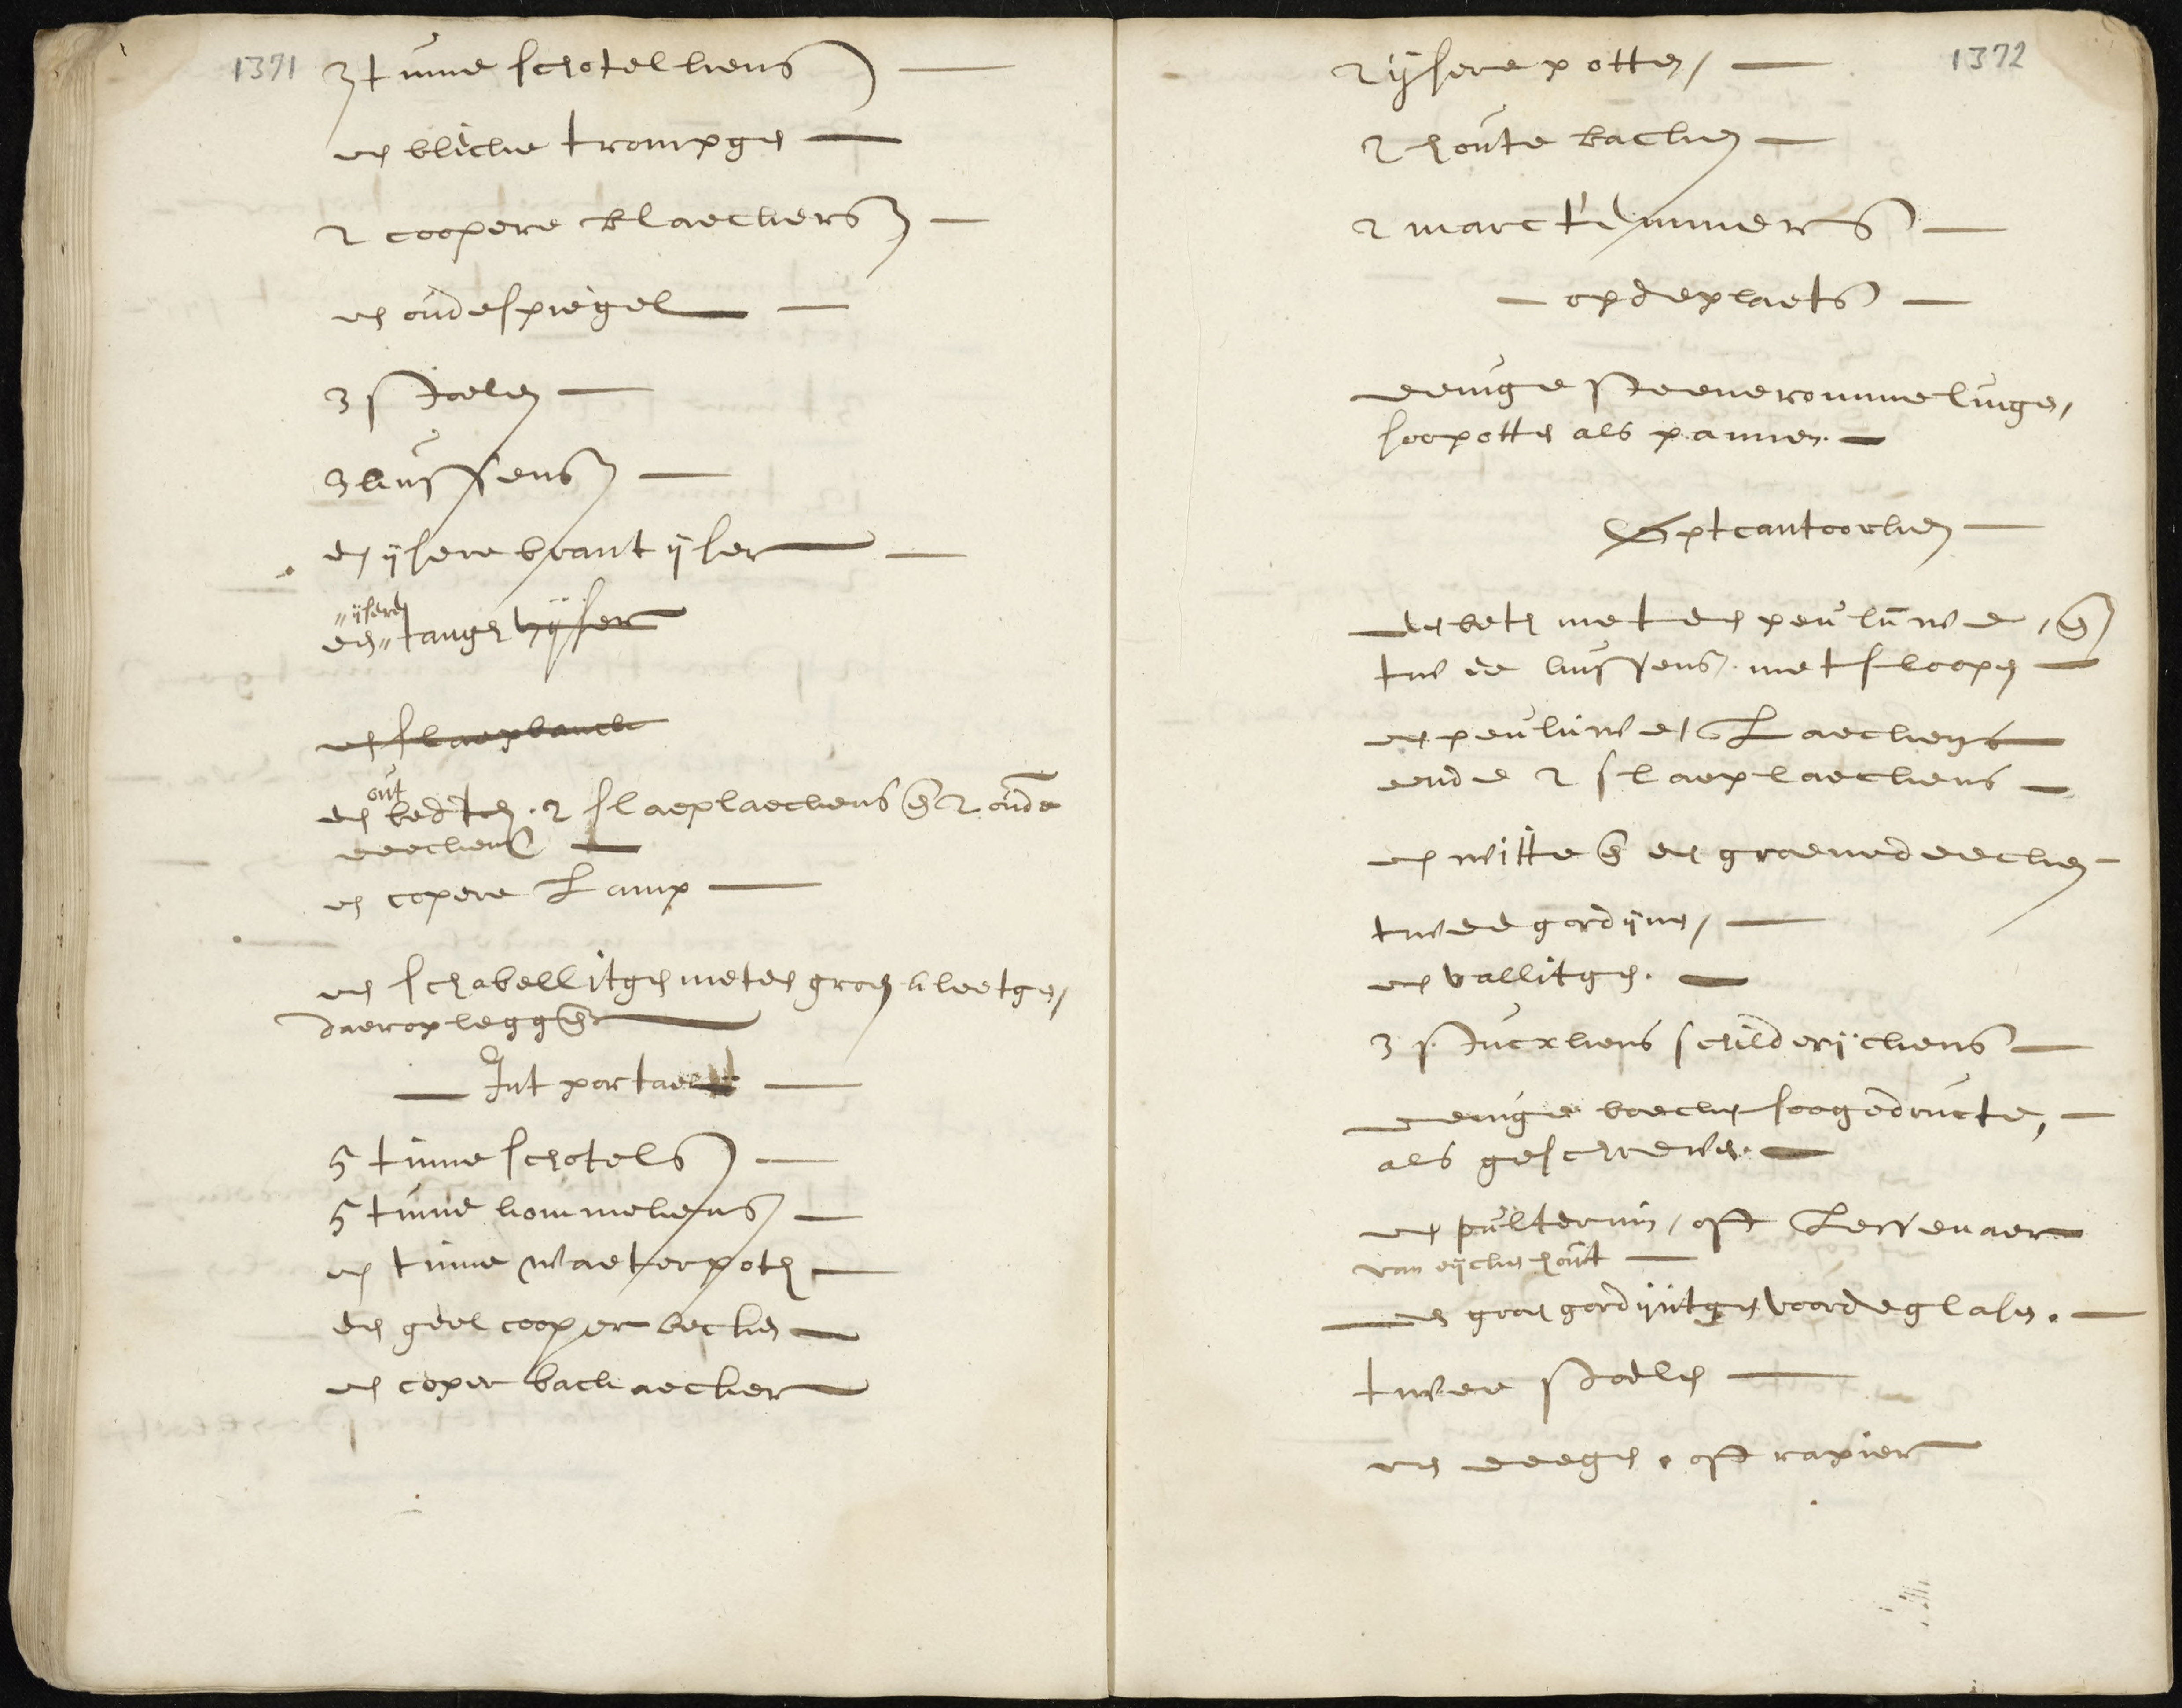 1371
3 tinne schotelkens
een blicke trompgen
2 coopere blaeckers
een oude spiegel
3 stoelen
3 kussens
een ijsere brantijser
ijsere
een tange
een slaepbanck
out
een bedt en 2 slaeplaeckens en 2 oude
deeckens
een copere Lamp
een schabellitgen met een groen kleetgen,
daer op leggen
Int portael
5 tinne schotels
5 tinne kommekens
een tinne waeterpot
een geel cooper becken
een coper backaecker
1372
2 ijsere potten,
2 houte backen
2 marct emmers
op de plaets
eenige steene rommelinge,
soo potten als pannen.
Opt cantoorken
een bet met een peuluwe, en
twee kussens met sloopen
een peuluwe Laecken
ende 2 slaeplaeckens
een witte en een groene deecken
twee gordijnen,
een vallitgen.
3 stucxkens schilderijckens
eenige boecken soo gedructe,
als geschreven.
een pulterum, oft Lessenaer
van eijcken hout
een groen gordijntgen voor de glasen.
twee stoelen
een deegen, oft rapier